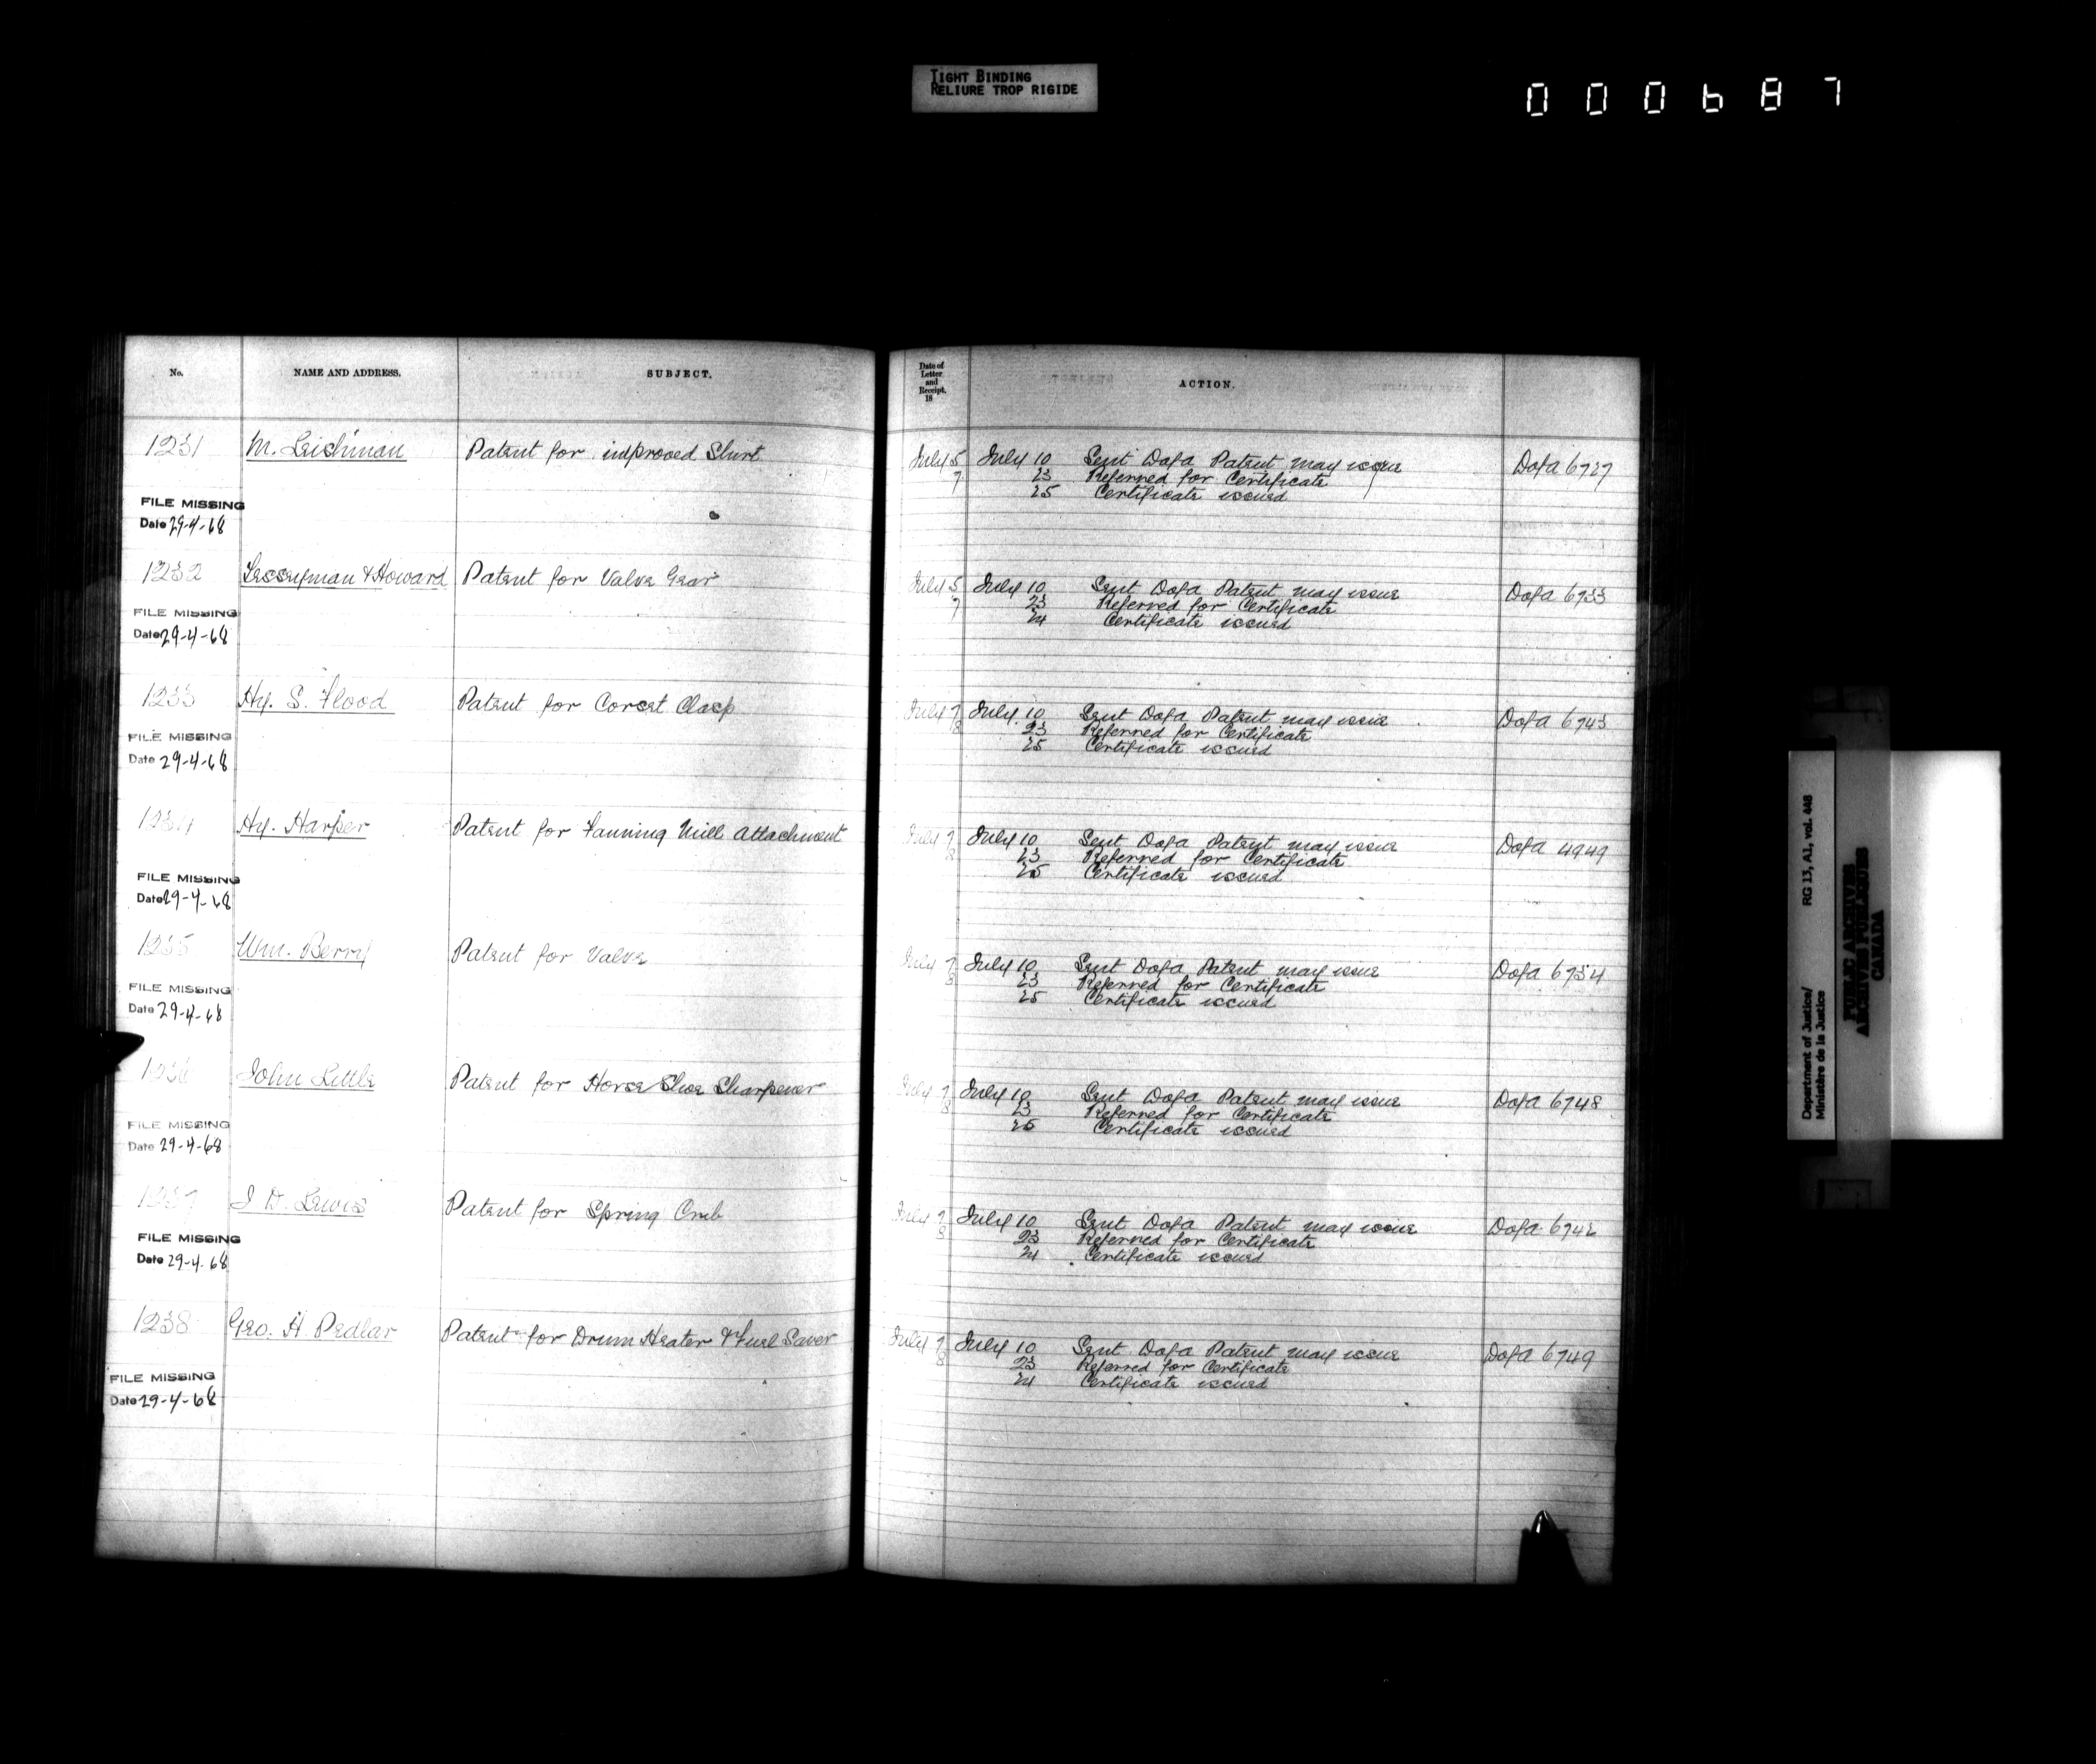 TIGHT BINDING
RELIURE TROP RIGIDE
000687
No.
NAME AND ADDRESS.
SUBJECT.
Date of
Letter
and
Receipt.
18
ACTION.
1231 M. Leishman Patent for improved Shirt July 5 July 10 Sent Dofa Patent may issue Dofa 6727
7 23 Referred for Certificate
25 Certificate issued
FILE MISSING
Date 29-4-68
1232 & Howard Patent for Valve Gear July 5 July 10 Sent Dofa Patent may issue Dofa 6733
7 23 Referred for Certificate
24 Certificate issued
FILE MISSING
Date 29-4-68
1233 Hy. S. Flood Patent for Corset Clasp July 7 July 10 Sent Dofa Patent may issue Dofa 6743
8 23 Referred for Certificate
25 Certificate issued
FILE MISSING
Date 29-4-68
1234 Hy. Harper Patent for Fanning Mill Attachment July 7 July 10 Sent Dofa Patent may issue Dofa 4949
8 23 Referred for Certificate
25 Certificate issued
FILE MISSING
Date 29-4-68
1235 Wm. Berry Patent for Valve July 7 July 10 Sent Dofa Patent may issue Dofa 6734
8 23 Referred for Certificate
25 Certificate issued
FILE MISSING
Date 29-4-68
1236 John Little Patent for Horse Shoe Sharpener July 7 July 10 Sent Dofa Patent may issue Dofa 6748
8 23 Referred for Certificate
25 Certificate issued
FILE MISSING
Date 29-4-68
1237 J D. Lewis Patent for Spring Crib July 7 July 10 Sent Dofa Patent may issue Dofa
8 23 Referred for Certificate
24 Certificate issued
FILE MISSING
Date 29-4-68
1238 Geo. H Pedlar Patent for Drum Heater & Fuel Saver July 7 July 10 Sent Dofa Patent may issue Dofa 6749
8 23 Referred for Certificate
24 Certificate issued
FILE MISSING
Date 29-4-68
Department of Justice/ RG 13, A1, vol. 448
Ministère de la Justice
PUBLIC ARCHIVES
ARCHIVES PUBLIQUES
CANADA